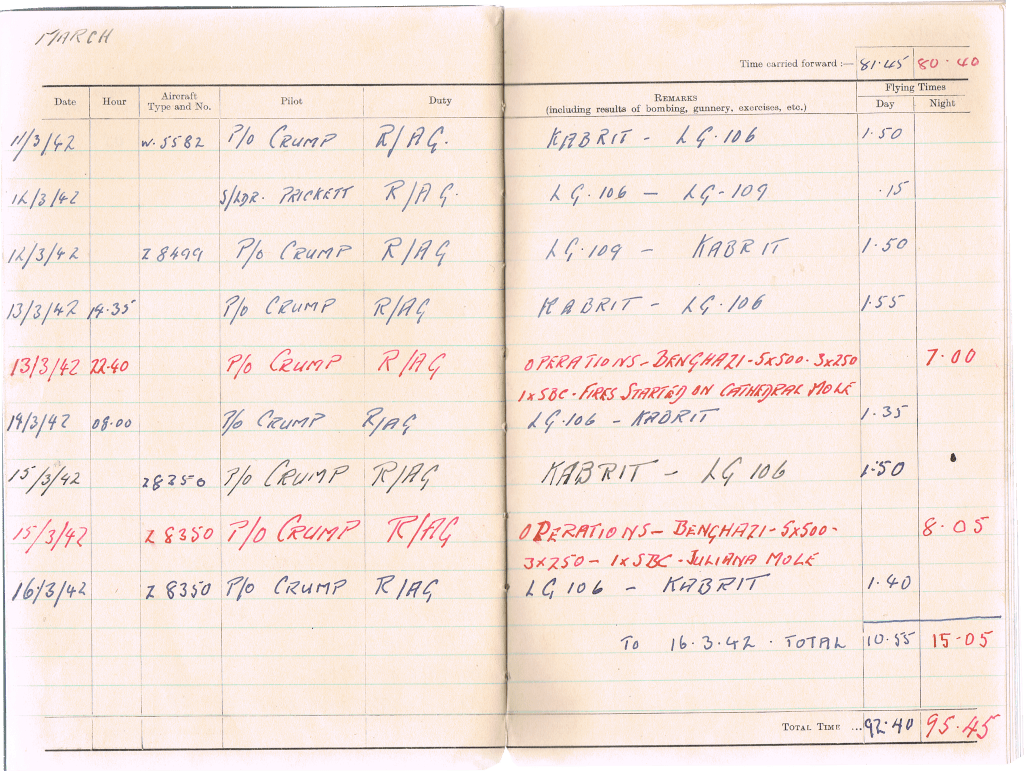 MARCH
Time carried forward :— 81.45 80.40
Date Hour Aircraft Type and No. Pilot Duty REMARKS (including results of bombing, gunnery, exercises, etc.) Flying Times Day Night
11/3/42 W.5582 P/O CRUMP R/AG. KABRIT – LG.106 1.50
12/3/42 S/LDR. PRICKETT R/AG. LG.106 – LG-109 .15
12/3/42 Z8499 P/O CRUMP R/AG LG.109 – KABRIT 1.50
13/3/42 14.35 P/O CRUMP R/AG KABRIT – LG.106 1.55
13/3/42 22.40 P/O CRUMP R/AG OPERATIONS – BENGHAZI - 5x500. 3x250 7.00
1xSBC - FIRES STARTED ON CATHEDRAL MOLE
14/3/42 08.00 P/O CRUMP R/AG LG.106 – KABRIT 1.35
15/3/42 Z8350 P/O CRUMP R/AG KABRIT – LG 106 1.50
15/3/42 Z 8350 P/O CRUMP R/AG OPERATIONS – BENGHAZI - 5x500- 8.05
3x250 – 1xSBC - JULIANA MOLE
16/3/42 Z 8350 P/O CRUMP R/AG LG 106 – KABRIT 1.40
TO 16.3.42 . TOTAL 10.55 15.05
TOTAL TIME ... 92.40 95.45